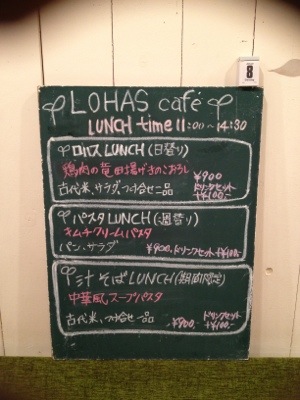 LOHAS café
LUNCH time 11:00〜14:30
ロハス LUNCH (日替り)
鶏肉の竜田揚げきのこおろし
¥900
古代米、サラダ、つけ合せ一品
ドリンクセット
+¥100-
パスタ LUNCH (週替り)
キムチクリームパスタ
パン・サラダ
¥900 ドリンクセット +¥100-
汁そば LUNCH (期間限定)
中華風スープパスタ
古代米、つけ合せ一品
¥800-
ドリンクセット
+¥100-
8